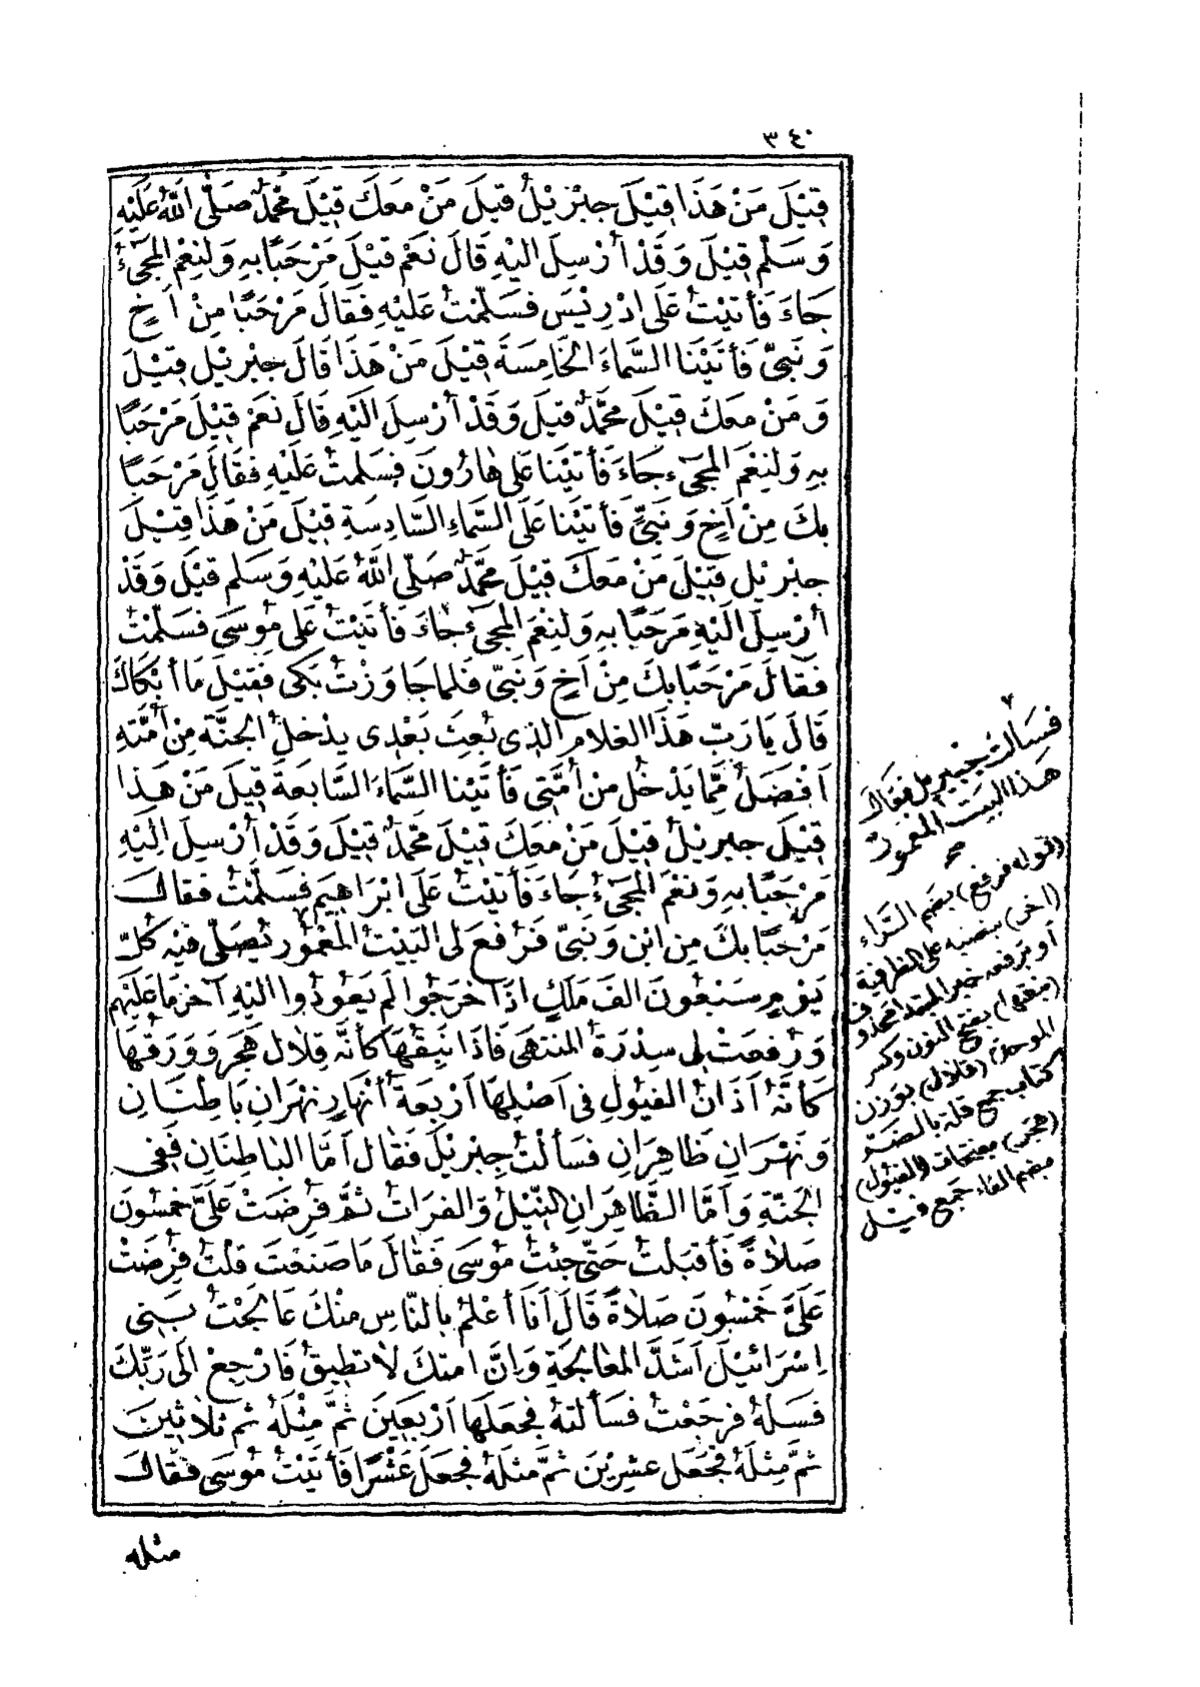 ٣٤٠
قِيْلَ مَنْ هَذَا قِيْلَ جِبْرِيْلُ قِيْلَ مَنْ مَعَكَ قِيْلَ مُحَمَّدٌ صَلَّى اللّٰهُ عَلَيْهِ
وَسَلَّمَ قِيْلَ وَقَدْ أُرْسِلَ اِلَيْهِ قَالَ نَعَمْ قِيْلَ مَرْحَبًا بِهِ وَلَنِعْمَ المَجِيْءُ
جَاءَ فَأَتَيْتُ عَلَى اِدْرِيْسَ فَسَلَّمْتُ عَلَيْهِ فَقَالَ مَرْحَبًا مِنْ اَخٍ
وَنَبِىٍّ فَأَتَيْنَا السَّمَاءَ الخَامِسَةَ قِيْلَ مَنْ هَذَا قَالَ جِبْرِيْلُ قِيْلَ
وَمَنْ مَعَكَ قِيْلَ مُحَمَّدٌ قِيْلَ وَقَدْ أُرْسِلَ اِلَيْهِ قَالَ نَعَمْ قِيْلَ مَرْحَبًا
بِهِ وَلَنِعْمَ المَجِيْءُ جَاءَ فَأَتَيْنَا عَلَى هَارُونَ فَسَلَّمْتُ عَلَيْهِ فَقَالَ مَرْحَبًا
بِكَ مِنْ اَخٍ وَنَبِىٍّ فَأَتَيْنَا عَلَى السَّمَاءِ السَّادِسَةِ قِيْلَ مَنْ هَذَا قِيْلَ
جِبْرِيْلُ قِيْلَ مَنْ مَعَكَ قِيْلَ مُحَمَّدٌ صَلَّى اللّٰهُ عَلَيْهِ وَسَلَّمَ قِيْلَ وَقَدْ
أُرْسِلَ اِلَيْهِ مَرْحَبًا بِهِ وَلَنِعْمَ المَجِيْءُ جَاءَ فَأَتَيْتُ عَلَى مُوسَى فَسَلَّمْتُ
فَقَالَ مَرْحَبًا بِكَ مِنْ اَخٍ وَنَبِىٍّ فَلَمَّا جَاوَزْتُ بَكَى فَقِيْلَ مَا أَبْكَاكَ
قَالَ يَا رَبِّ هَذَا الغُلَامُ الَّذِى بُعِثَ بَعْدِى يَدْخُلُ الجَنَّةَ مِنْ أُمَّتِهِ
اَفْضَلُ مِمَّا يَدْخُلُ مِنْ أُمَّتِى فَأَتَيْنَا السَّمَاءَ السَّابِعَةَ قِيْلَ مَنْ هَذَا
قِيْلَ جِبْرِيْلُ قِيْلَ مَنْ مَعَكَ قِيْلَ مُحَمَّدٌ قِيْلَ وَقَدْ أُرْسِلَ اِلَيْهِ
مَرْحَبًا بِهِ وَنِعْمَ المَجِيْءُ جَاءَ فَأَتَيْتُ عَلَى اِبْرَاهِيْمَ فَسَلَّمْتُ فَقَالَ
مَرْحَبًا بِكَ مِنِ ابْنٍ وَنَبِىٍّ فَرُفِعَ لِى البَيْتُ المَعْمُوْرُ يُصَلِّى فِيْهِ كُلَّ
يَوْمٍ سَبْعُونَ الفَ مَلَكٍ اِذَا خَرَجُوا لَمْ يَعُوْدُوا اِلَيْهِ آخِرَ مَا عَلَيْهِمْ
وَرُفِعَتْ لِى سِدْرَةُ المُنْتَهَى فَاِذَا نَبِقُهَا كَأَنَّهُ قِلَالُ هَجَرَ وَوَرَقُهَا
كَأَنَّهُ آذَانُ الفُيُوْلِ فِى اَصْلِهَا اَرْبَعَةُ أَنْهَارٍ نَهْرَانِ بَاطِنَانِ
وَنَهْرَانِ ظَاهِرَانِ فَسَأَلْتُ جِبْرِيْلَ فَقَالَ اَمَّا البَاطِنَانِ فَفِى
الجَنَّةِ وَاَمَّا الظَّاهِرَانِ النِّيْلُ وَالفُرَاتُ ثُمَّ فُرِضَتْ عَلَىَّ خَمْسُونَ
صَلَاةً فَأَقْبَلْتُ حَتَّى جِئْتُ مُوْسَى فَقَالَ مَا صَنَعْتَ قُلْتُ فُرِضَتْ
عَلَىَّ خَمْسُونَ صَلَاةً قَالَ أَنَا أَعْلَمُ بِالنَّاسِ مِنْكَ عَالَجْتُ بَنِى
اِسْرَائِيْلَ اَشَدَّ المُعَالَجَةِ وَاِنَّ اُمَّتَكَ لَا تُطِيْقُ فَارْجِعْ اِلَى رَبِّكَ
فَسَلْهُ فَرَجَعْتُ فَسَأَلْتُهُ فَجَعَلَهَا اَرْبَعِيْنَ ثُمَّ مِثْلَهُ ثُمَّ ثَلَاثِيْنَ
ثُمَّ مِثْلَهُ فَجَعَلَ عِشْرِيْنَ ثُمَّ مِثْلَهُ فَجَعَلَ عَشْرًا فَأَتَيْتُ مُوْسَى فَقَالَ
مثله
فسألت جبريل فقال
هذا البيت المعمور
صح
(قوله فرفع) بضم الراء
(آخر) بنصبه على الظرفية
أو برفعه خبر المبتدا محذوف
(نبقها) بفتح النون وكسر
الموحدة (قلال) بوزن
كتاب جمع قلة بالضم
(هجر) بفتحات (الفيول)
بضم الفاء جمع فيل